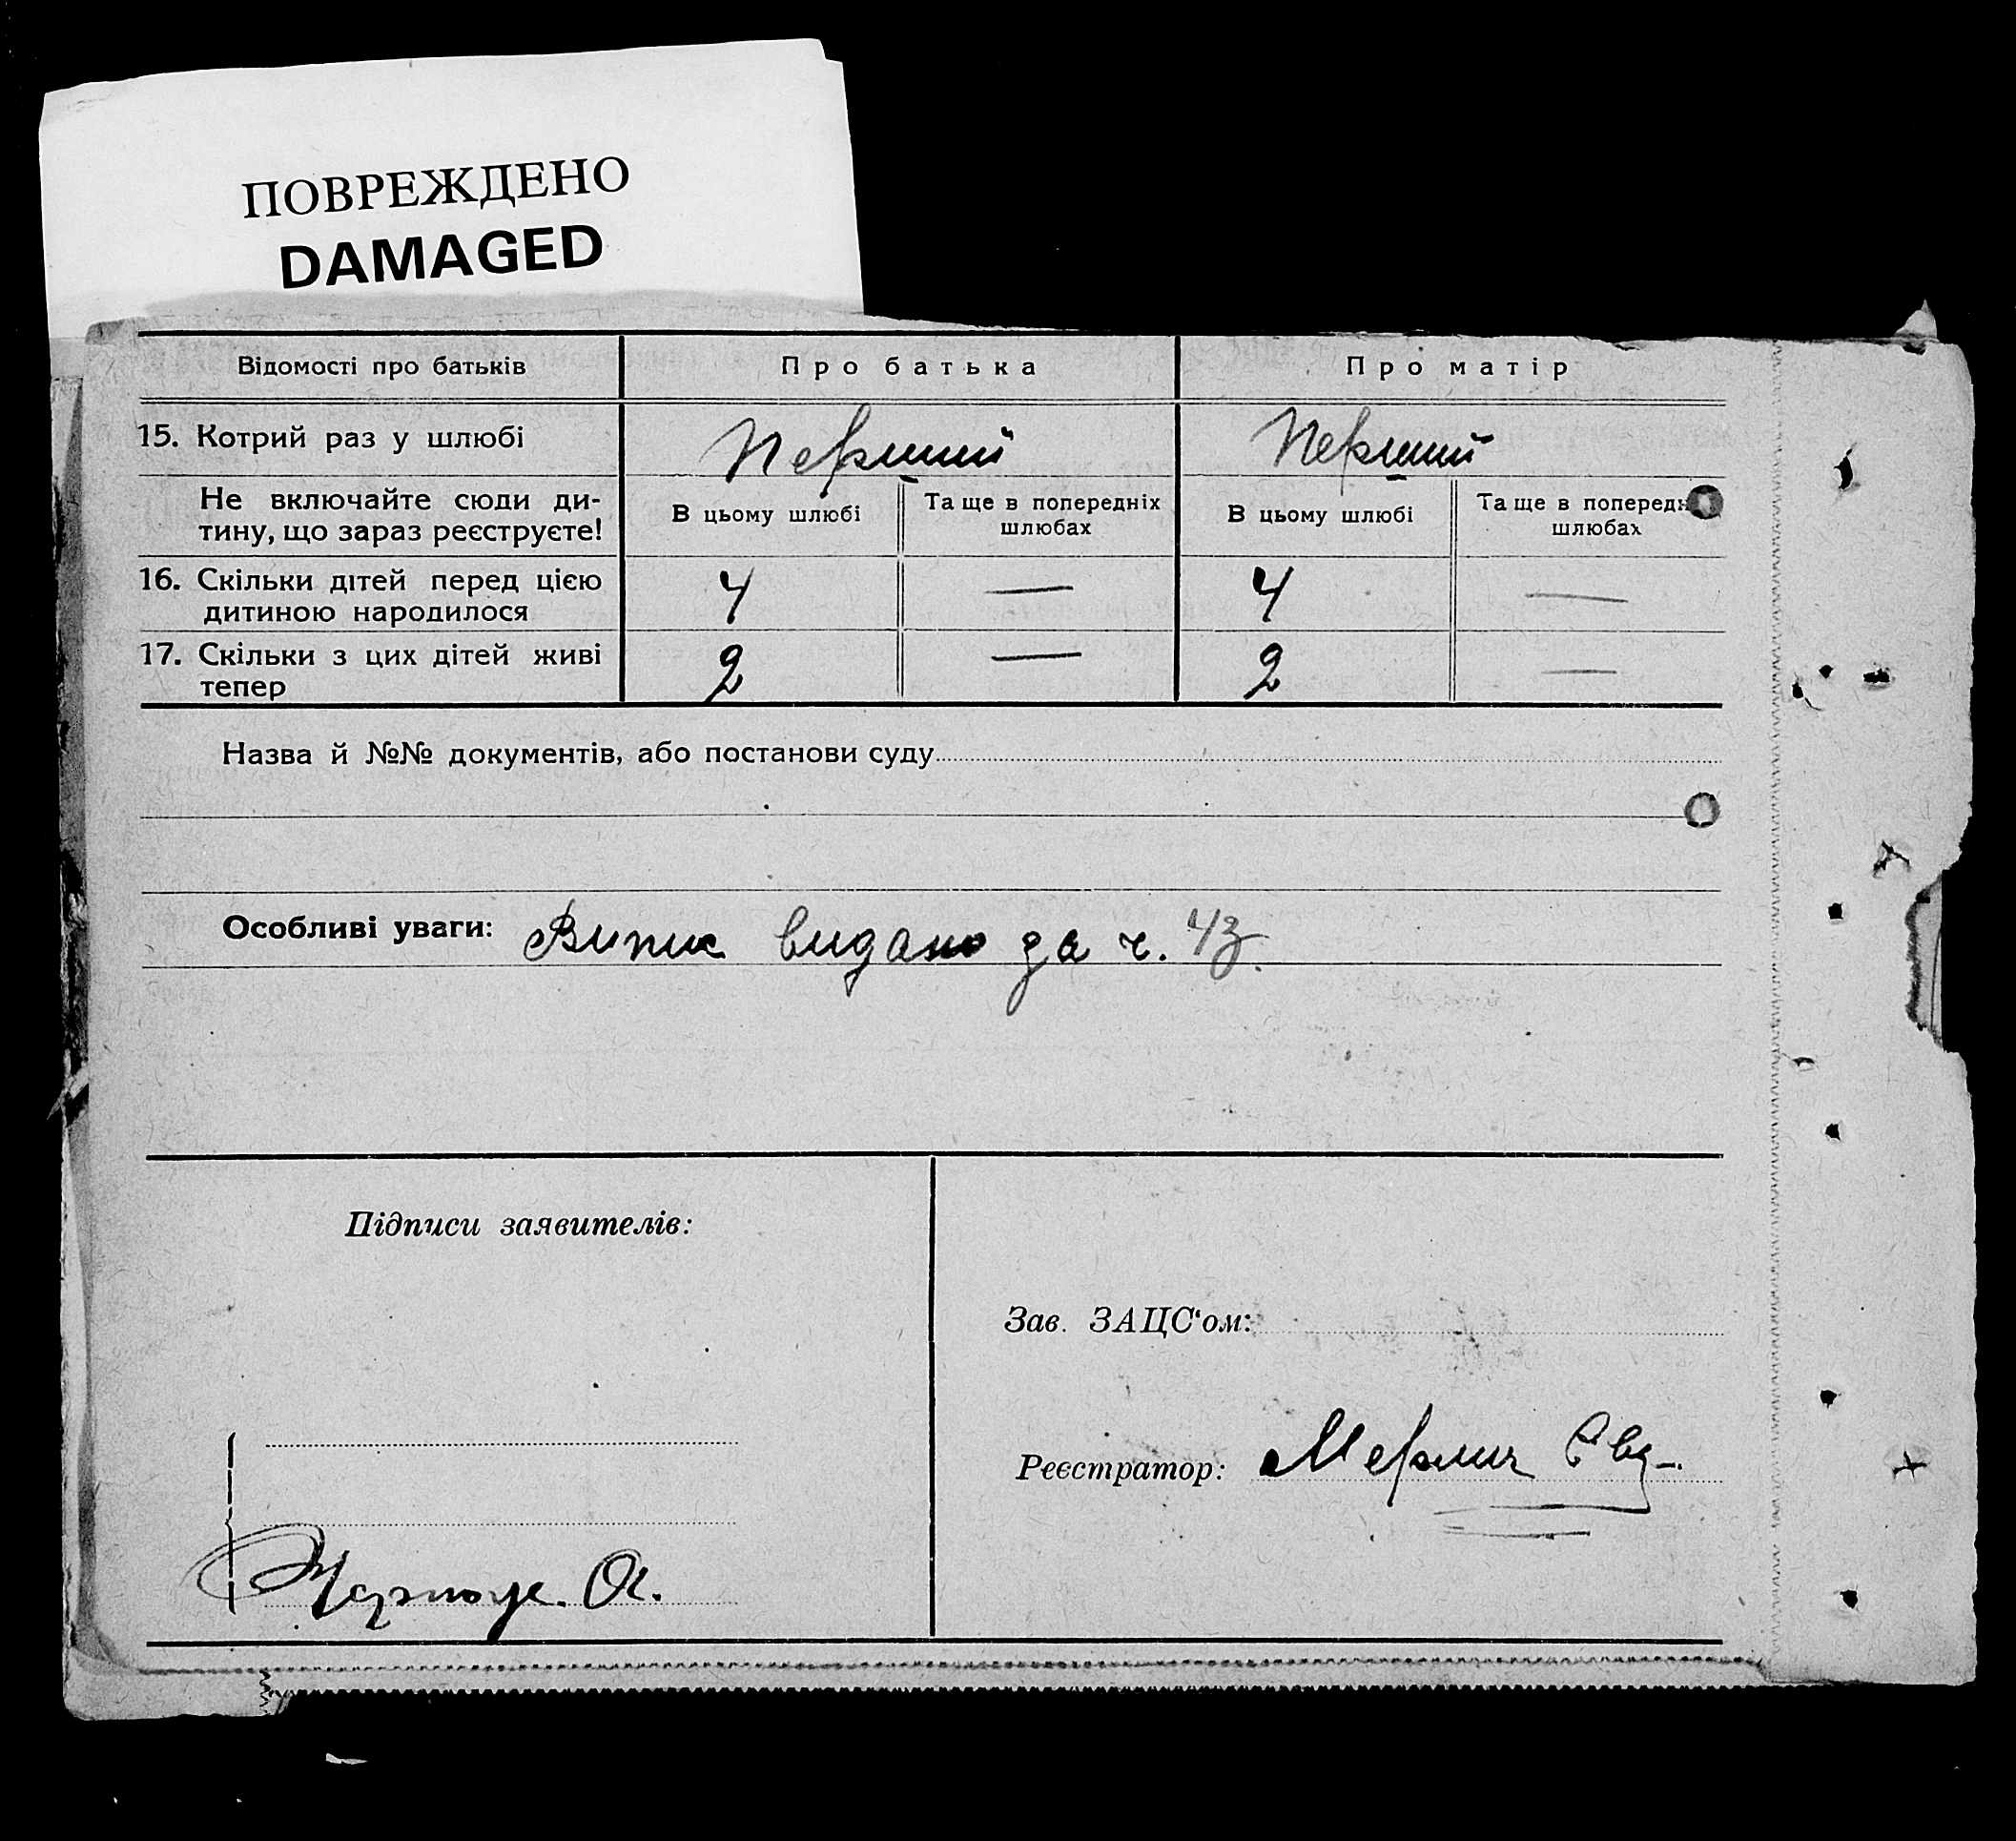 ПОВРЕЖДЕНО
DAMAGED
Відомості про батьків Про батька Про матір
15. Котрий раз у шлюбі Перший Перший
Не включайте сюди ди-
тину, що зараз реєструєте!
В цьому шлюбі
Та ще в попередніх
шлюбах
В цьому шлюбі
Та ще в попередн
шлюбах
16. Скільки дітей перед цією
дитиною народилося
4 — 4 —
17. Скільки з цих дітей живі
тепер
2 — 2 —
Назва й №№ документів, або постанови суду
Особливі уваги: Випис видано за ч. 43.
Підписи заявителів:
Зав. ЗАЦС'ом:
Реєстратор: